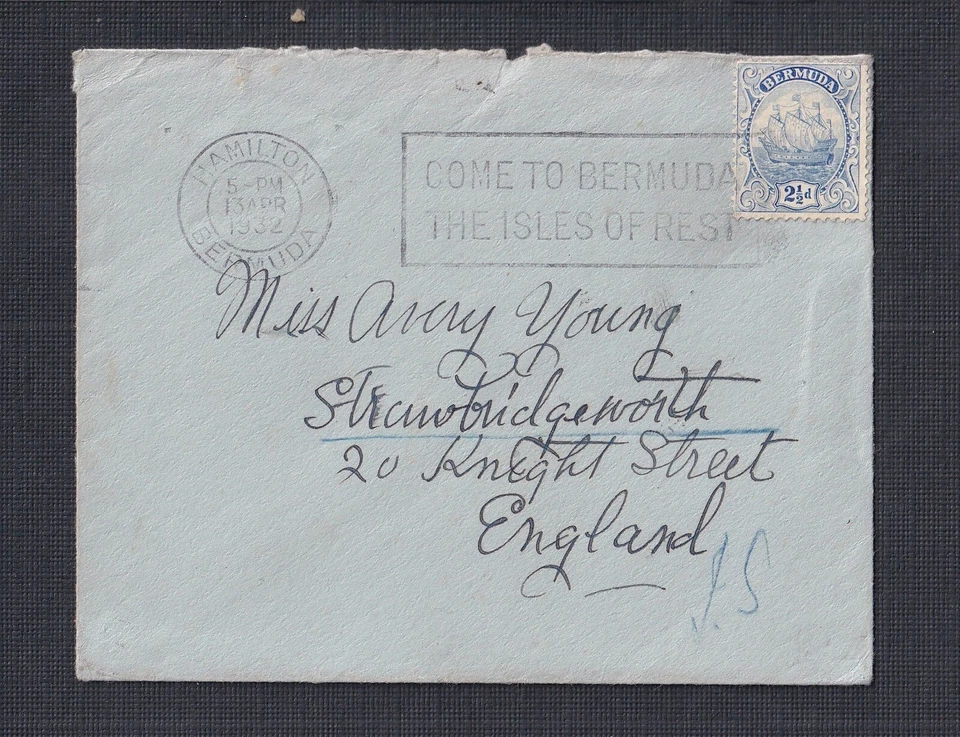 HAMILTON
5-PM
13 APR
1932
BERMUDA
COME TO BERMUDA
THE ISLES OF REST
BERMUDA
2½d
Miss Avery Young
Strawbridgeworth
20 Knight Street
England